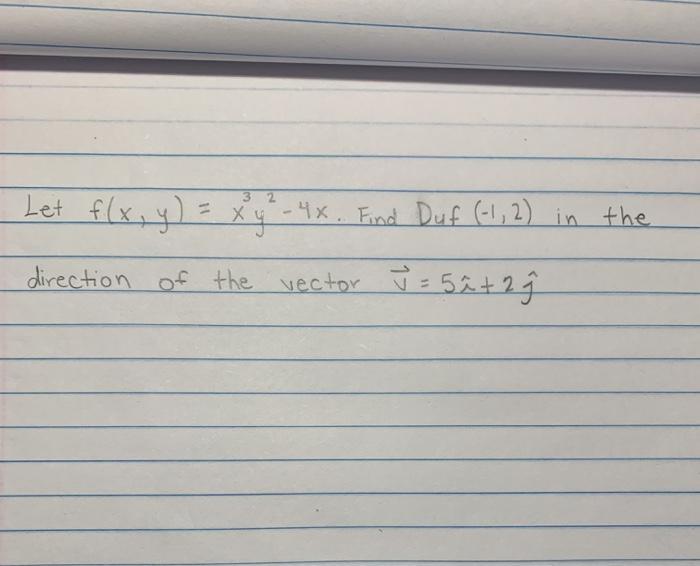 Let f(x, y) = x³y² - 4x. Find Duf (-1, 2) in the
direction of the vector v⃗ = 5î + 2ĵ